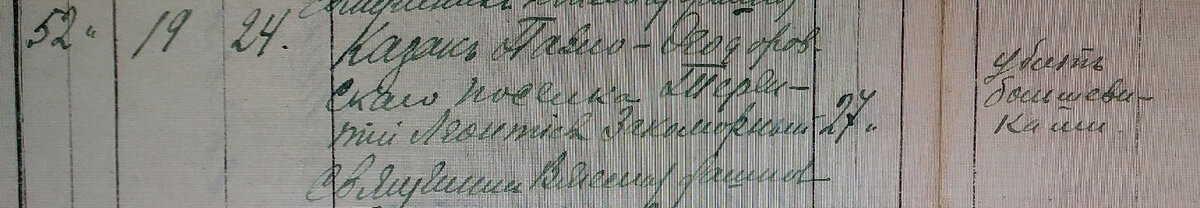 52 19 24. Казакъ Павло-Ѳеодоров-
скаго поселка Терен-
тій Леонтіев Закоморный 27 убитъ
большеви-
ками.
Священник